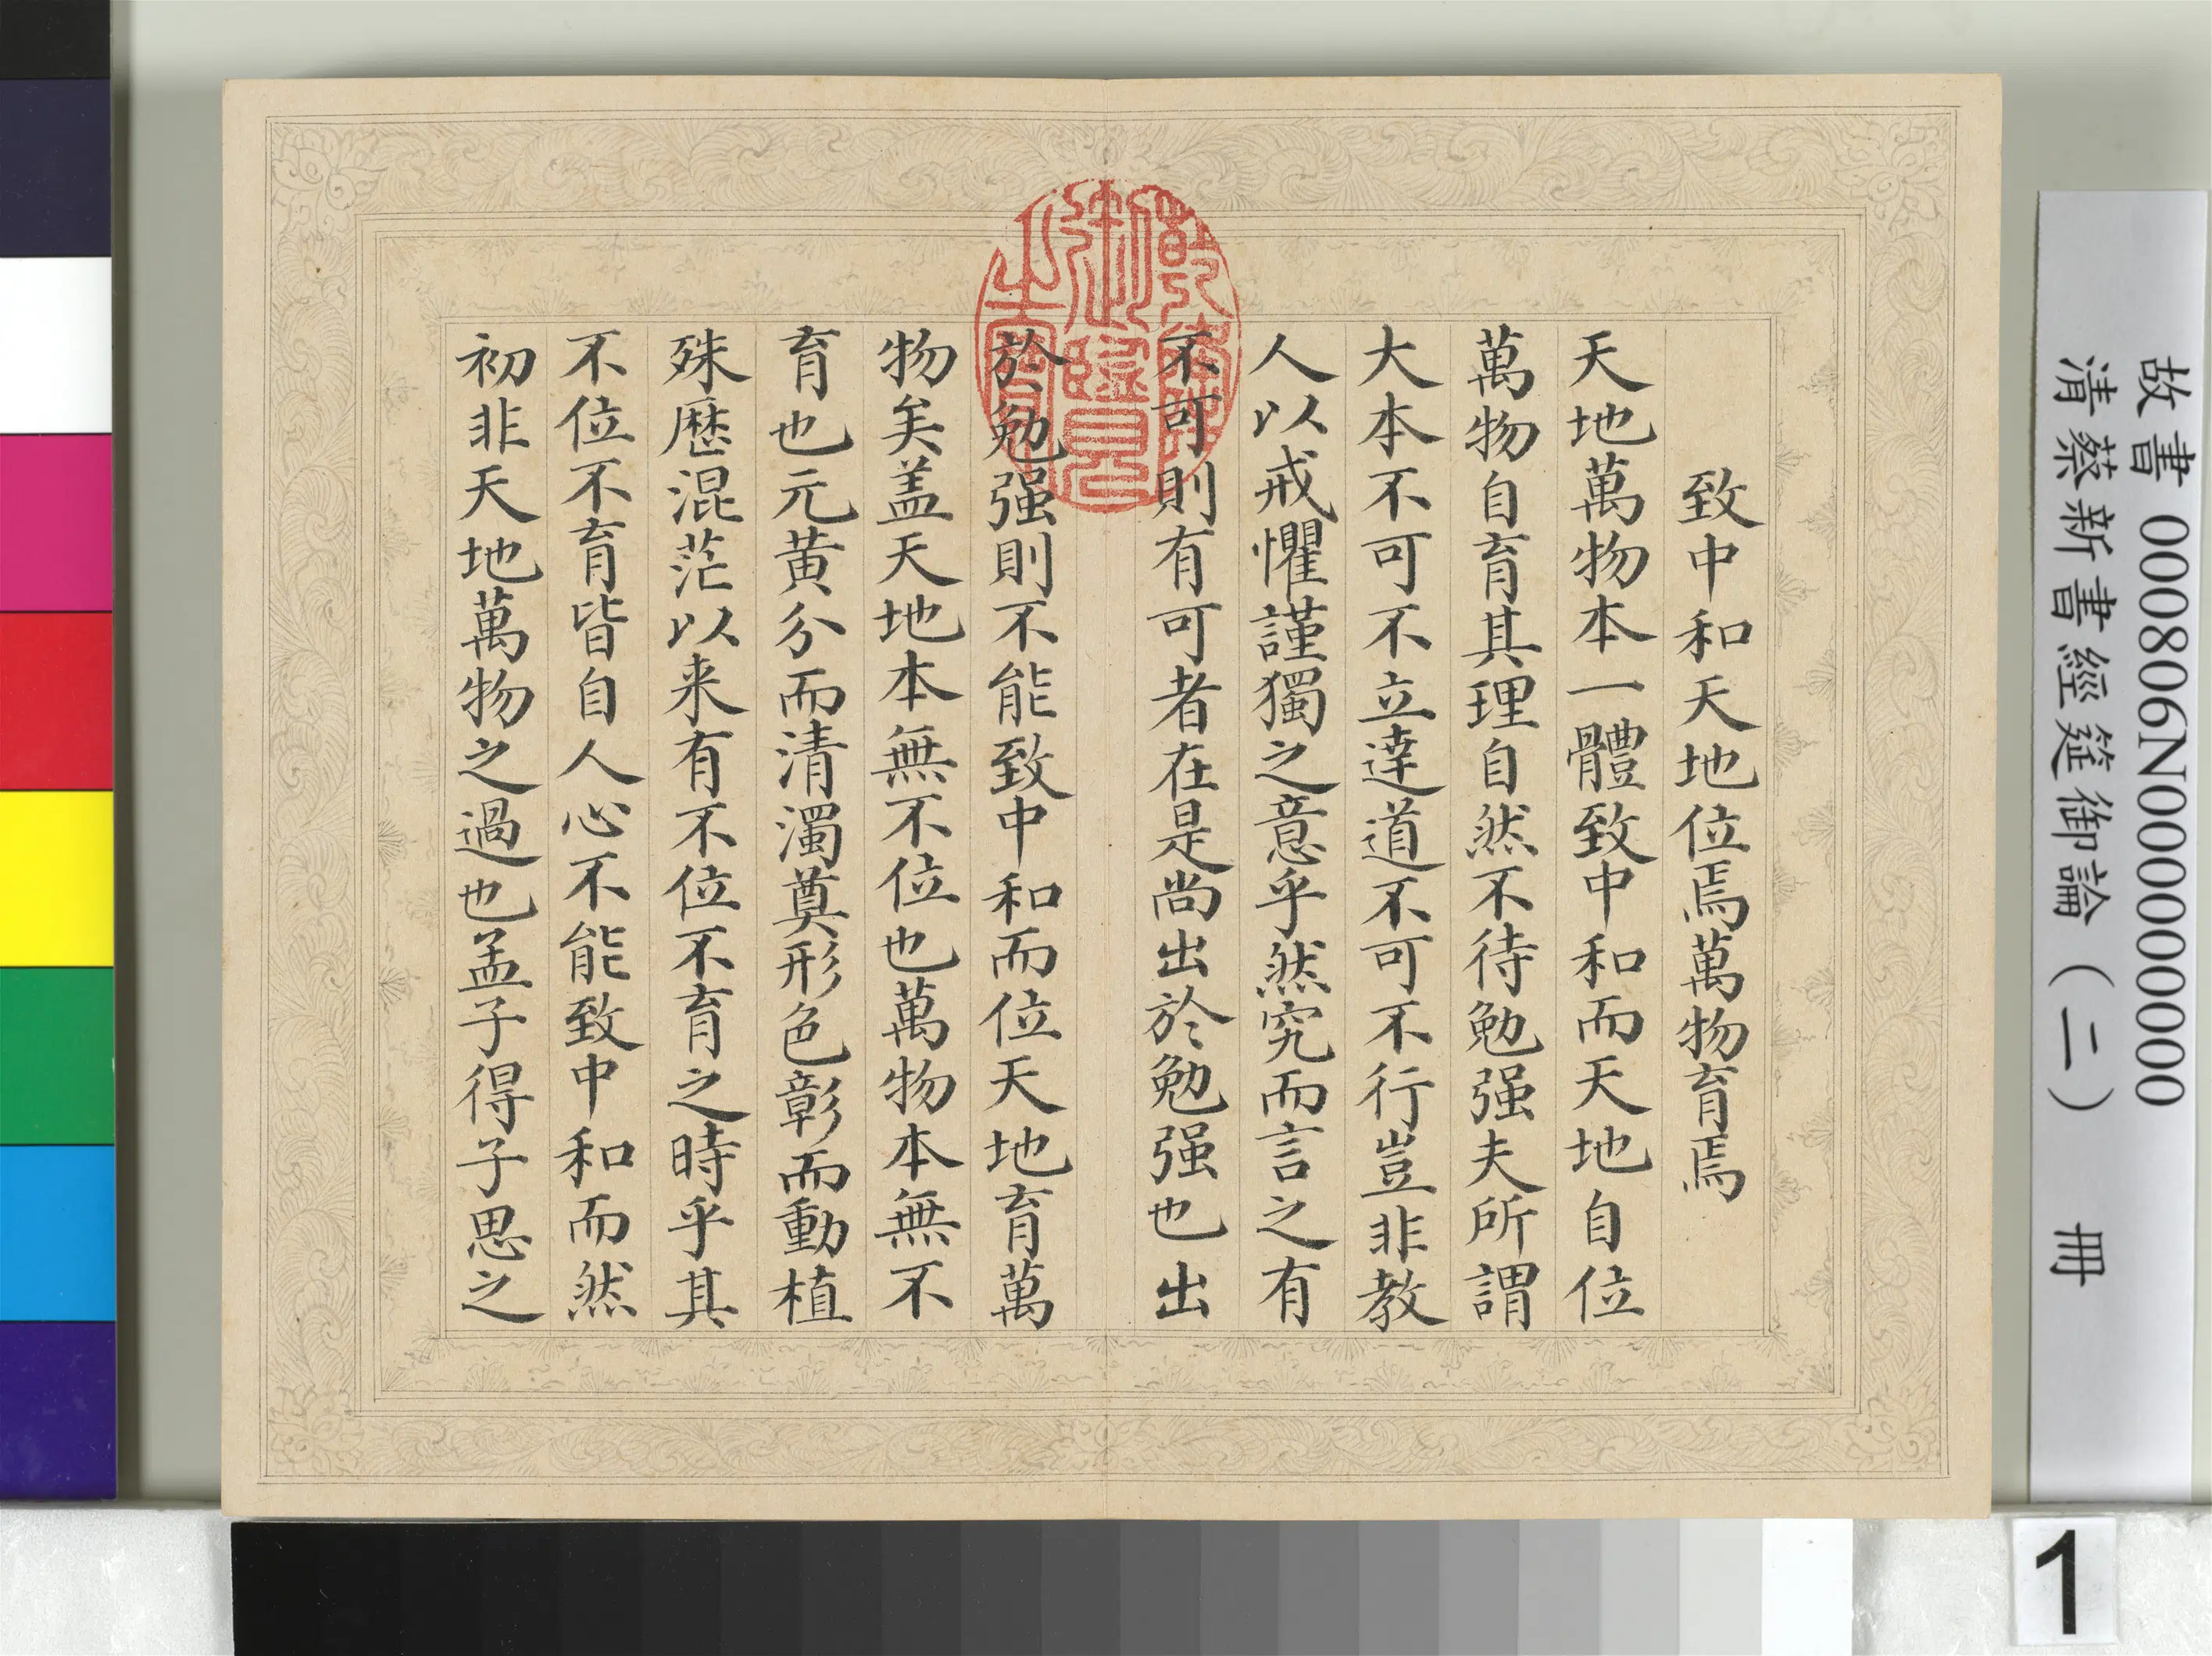 致中和天地位焉萬物育焉
天地萬物本一體致中和而天地自位
萬物自育其理自然不待勉强夫所謂
大本不可不立達道不可不行豈非教
人以戒懼謹獨之意乎然究而言之有
不可則有可者在是尚出於勉强也出
於勉强則不能致中和而位天地育萬
物矣盖天地本無不位也萬物本無不
育也元黄分而清濁奠形色彰而動植
殊歴混茫以来有不位不育之時乎其
不位不育皆自人心不能致中和而然
初非天地萬物之過也孟子得子思之
乾隆御覽之寶
故書 000806N000000000
清蔡新書經筵御論（二） 冊
1